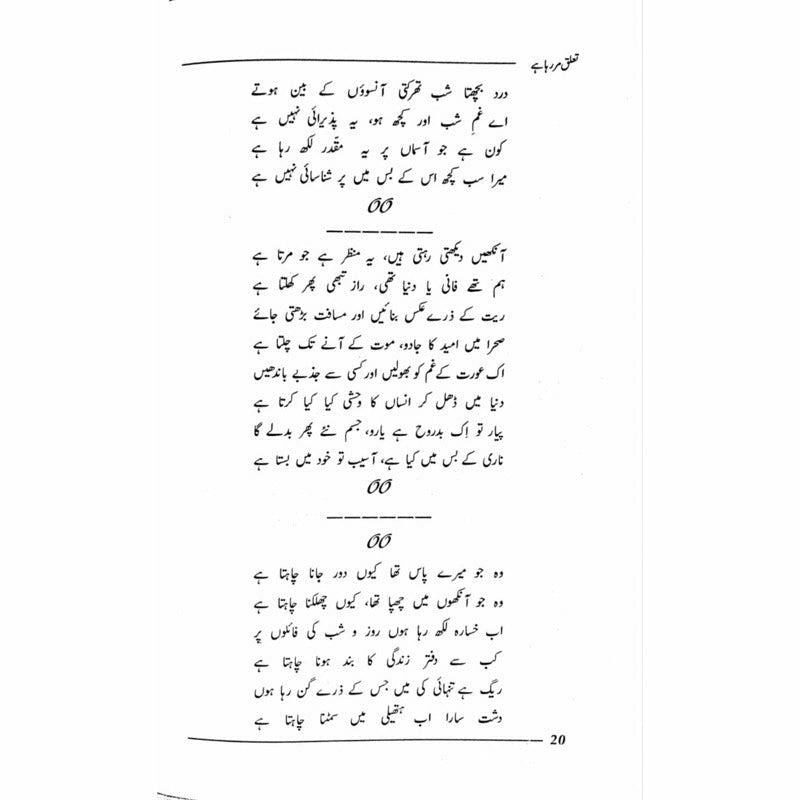 تعلق مر رہا ہے
درد بجھتا شب تھرکتی آنسوؤں کے بین ہوتے
اے غمِ شب اور کچھ ہو، یہ پذیرائی نہیں ہے
کون ہے جو آسماں پر یہ مقدّر لکھ رہا ہے
میرا سب کچھ اس کے بس میں پر شناسائی نہیں ہے
آنکھیں دیکھتی رہتی ہیں، یہ منظر ہے جو مرتا ہے
ہم تھے فانی یا دنیا تھی، راز تبھی پھر کھلتا ہے
ریت کے ذرے عکس بنائیں اور مسافت بڑھتی جائے
صحرا میں امید کا جادو، موت کے آنے تک چلتا ہے
اک عورت کے غم کو بھولیں اور کسی سے جذبے باندھیں
دنیا میں ڈھل کر انساں کا وحشی کیا کیا کرتا ہے
پیار تو اِک بدروح ہے یارو، جسم نئے پھر بدلے گا
ناری کے بس میں کیا ہے، آسیب تو خود میں بستا ہے
وہ جو میرے پاس تھا کیوں دور جانا چاہتا ہے
وہ جو آنکھوں میں چھپا تھا، کیوں چھلکنا چاہتا ہے
اب خسارہ لکھ رہا ہوں روز و شب کی فائلوں پر
کب سے دفتر زندگی کا بند ہونا چاہتا ہے
ریگ ہے تنہائی کی میں جس کے ذرے گن رہا ہوں
دشت سارا اب ہتھیلی میں سمٹنا چاہتا ہے
20